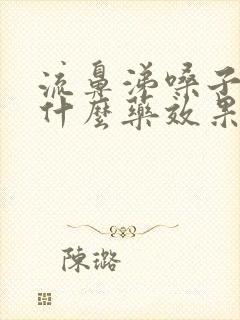 流鼻涕嗓子
什麼藥效果
陳璐